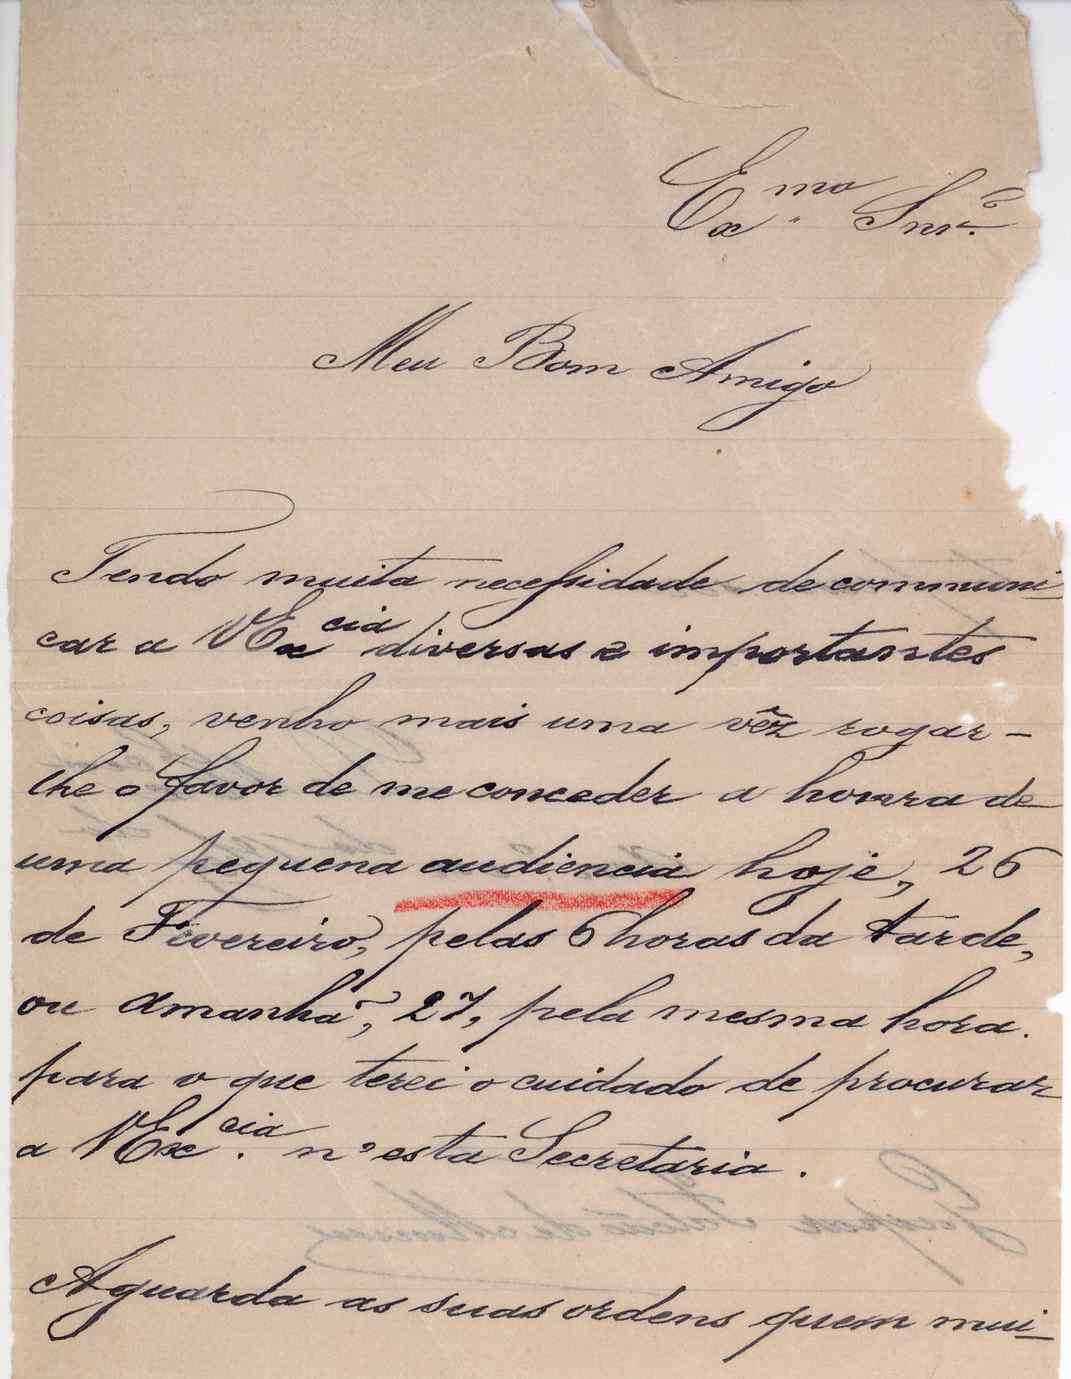 Ex.mo Snr.
Meu Bom Amigo
Tendo muita necessidade de communi
car a VExcia diversas e importantes
coisas, venho mais uma vêz rogar-
lhe o favor de me conceder a honra de
uma pequena audiencia hoje, 26
de Fevereiro, pelas 6 horas da tarde,
ou amanhã, 27, pela mesma hora.
para o que terei o cuidado de procurar
a VExcia. n'esta Secretaria.
Aguarda as suas ordens quem mui-